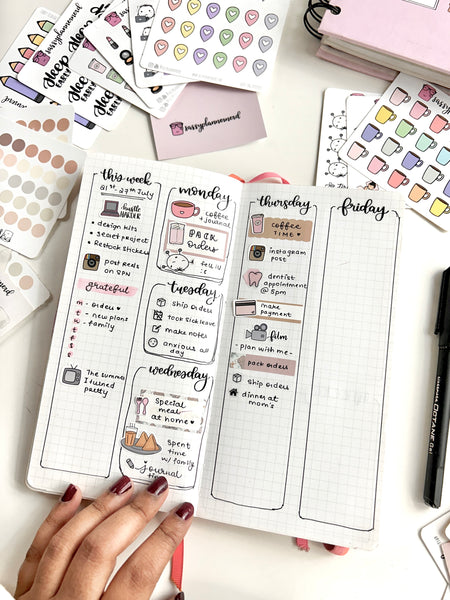 sassyplannernerd
SLEEP
EARLY
SLEEP
EARLY
sassyplannernerd
sassyplannernerd
this week
21st - 27th July
hustle
HARDER
• design kits
• secret project
• Restock stickers
post reels
on 8PM
grateful
m - orders ♥
t - new plans
w - family
t
f
s
s
The summer
I turned
pretty
monday
coffee
+ journal
PACK
orders
tuesday
ship orders
took sick leave
make notes
anxious all
day
wednesday
Special
meal
at home ♥
spent
time
w/ family
journal
thursday
COFFEE
TIME ♥
instagram
post
dentist
appointment
@ 5pm
make
payment
film
- plan with me -
pack orders
ship orders
dinner at
mom's
friday
OCTANE Gel